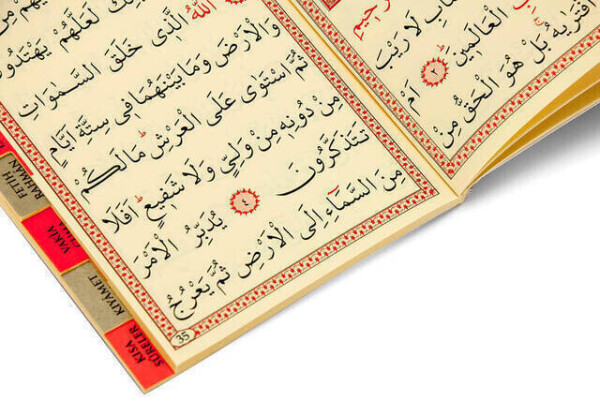 لَا رَيْبَ
الْعَالَمِينَ ﴿٢﴾ اَمْ
افْتَرٰيهُ بَلْ هُوَ الْحَقُّ مِنْ
لَعَلَّهُمْ يَهْتَدُونَ
اَللّٰهُ الَّذِى خَلَقَ السَّمٰوَاتِ
وَالْاَرْضَ وَمَا بَيْنَهُمَا فِى سِتَّةِ اَيَّامٍ
ثُمَّ اسْتَوٰى عَلَى الْعَرْشِ مَالَكُمْ
مِنْ دُونِهِ مِنْ وَلِىٍّ وَلَا شَفِيعٍ اَفَلَا
تَتَذَكَّرُونَ ﴿٤﴾ يُدَبِّرُ الْاَمْرَ
مِنَ السَّمَاءِ اِلَى الْاَرْضِ ثُمَّ يَعْرُجُ
35
FETİH
RAHMAN
VAKIA
KIYAMET
KISA
SÛRELER